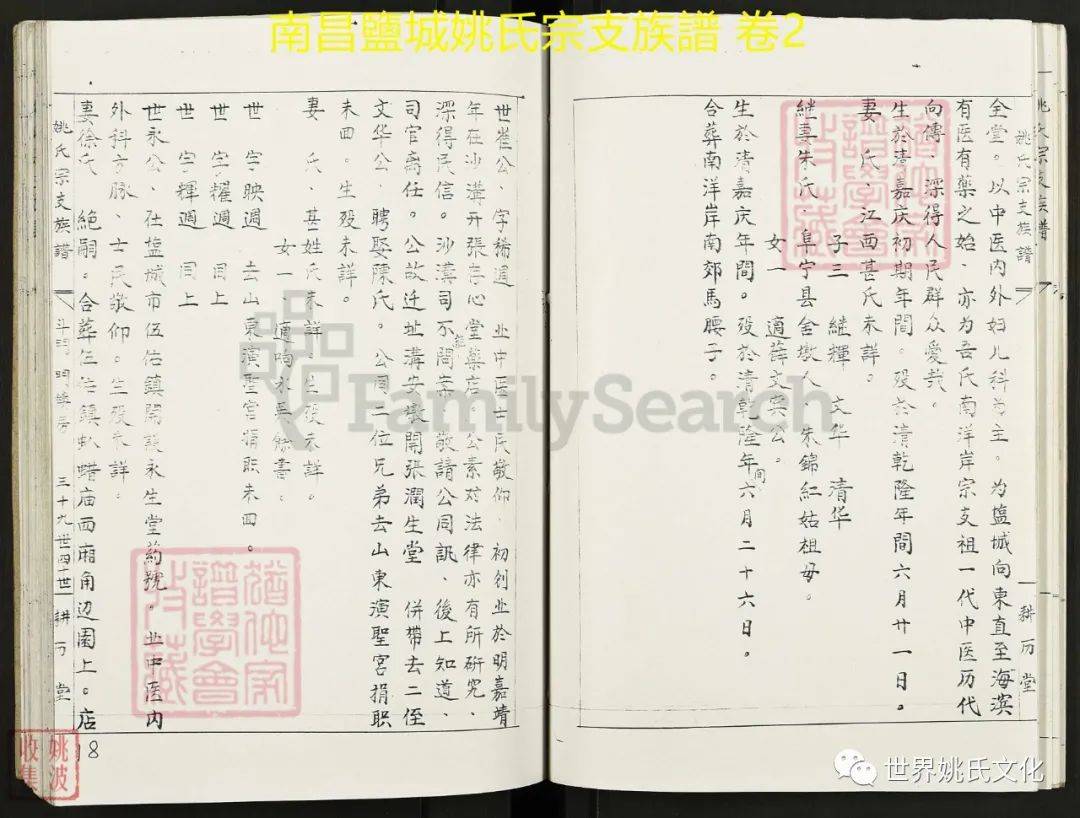 南昌鹽城姚氏宗支族譜 卷2
姚氏宗支族譜
耕历堂
全堂。以中医内外妇儿科为主。为塩城向東直至海濱
有医有藥之始、亦为吾氏南洋岸宗支祖一代中医历代
向傳、深得人民群众爱哉。
生於清嘉庆初期年間。殁於清乾隆年間六月廿一日。
妻 氏、江西甚氏未詳。
子三 继輝 文华 清华
继妻朱氏.阜宁县舍墩人、朱錦紅姑祖母。
女一 適薛文寀公。
生於清嘉庆年間。殁於清乾隆年间六月二十六日。
合葬南洋岸南郊馬腰子。
世崔公、字稀週 业中医士民敬仰.初创业於明嘉靖
年在沙溝开張存心堂藥店、公素对法律亦有所研究、
深得民信。沙溝司不 問案、敬請公同訊、後上知道、
司官离任。公故迁址溝安墩開張潤生堂 併帶去二侄
文华公、聘娶陳氏。公同二位兄弟去山東演聖宮捐职
未回。生殁未詳。
妻 氏、甚姓氏未詳.生殁未詳。
女一、適
世 字映週 去山東演聖宮捐职未回。
世 字耀週 同上
世 字輝週 同上
世永公、在塩城市伍佑鎮開設永生堂药號。业中医内
外科方脉、士民敬仰。生殁未詳。
妻徐氏 絕嗣。合葬伍佑鎮 蜡庙西廂角辺園上。店
姚氏宗支族譜
三十九世四十世
耕历堂
18
譜學會
姚波
收集
FamilySearch
世界姚氏文化